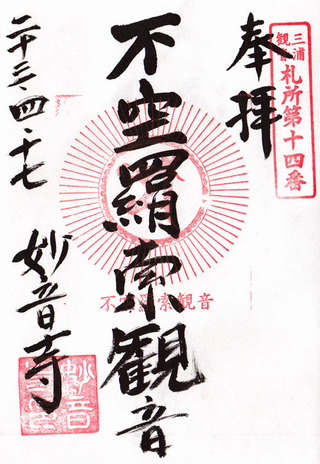 三浦
観音
札所第十四番
奉拝
不空羂索観音
不空羂索観音
二十三・四・十七
妙音寺